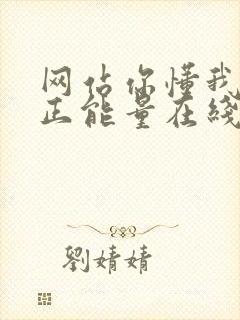 网站你懂我
正能量在线
劉婧婧